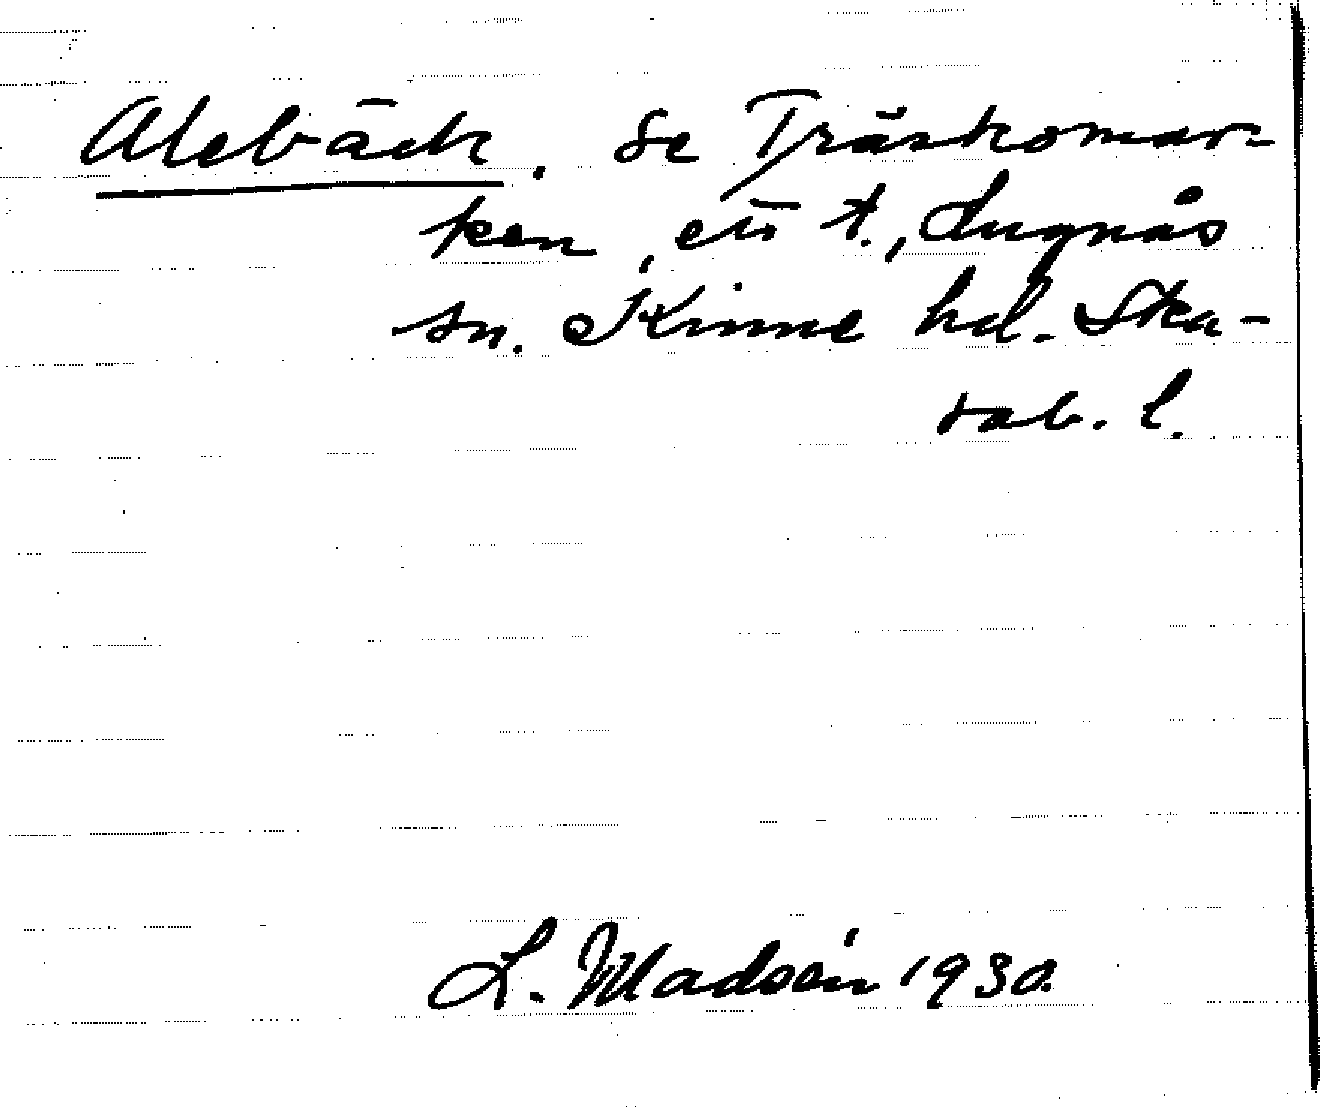 Alebäck. Se Träskomar-
ken, ett t., Lugnås
sn. Kinne hd. Ska-
rab. l.
L. Madsén 1930.